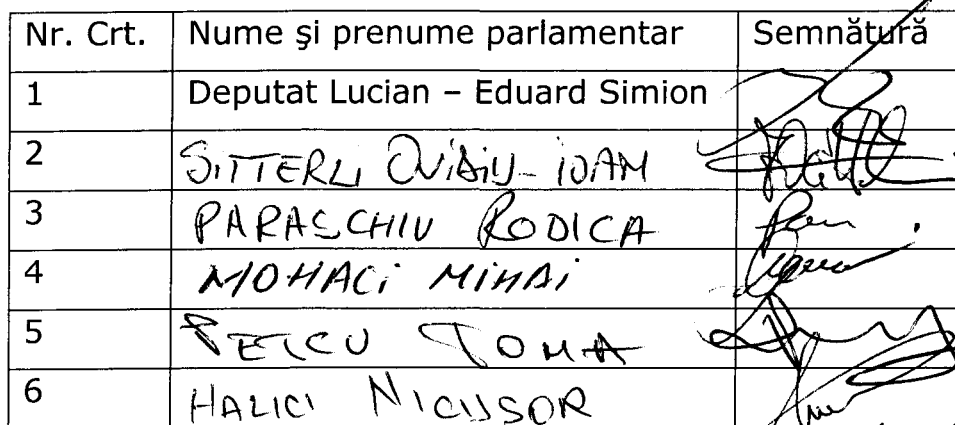 Nr. Crt. Nume și prenume parlamentar Semnătură
1 Deputat Lucian – Eduard Simion
2 SITTERLI OVIDIU-IOAN
3 PARASCHIV RODICA
4 MOHACI MIHAI
5 PETCU TOMA
6 HALICI NICUSOR